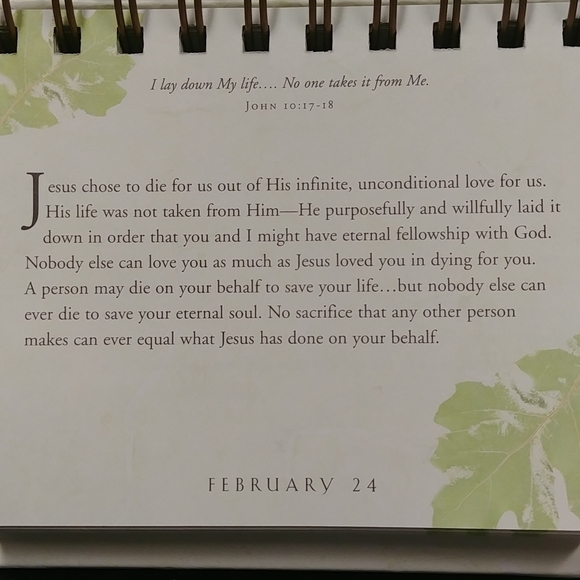 I lay down My life.... No one takes it from Me.
John 10:17-18
Jesus chose to die for us out of His infinite, unconditional love for us.
His life was not taken from Him—He purposefully and willfully laid it
down in order that you and I might have eternal fellowship with God.
Nobody else can love you as much as Jesus loved you in dying for you.
A person may die on your behalf to save your life...but nobody else can
ever die to save your eternal soul. No sacrifice that any other person
makes can ever equal what Jesus has done on your behalf.
FEBRUARY 24